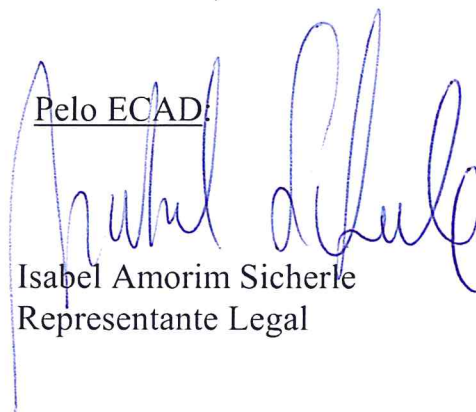 Pelo ECAD:
Isabel Amorim Sicherle
Representante Legal